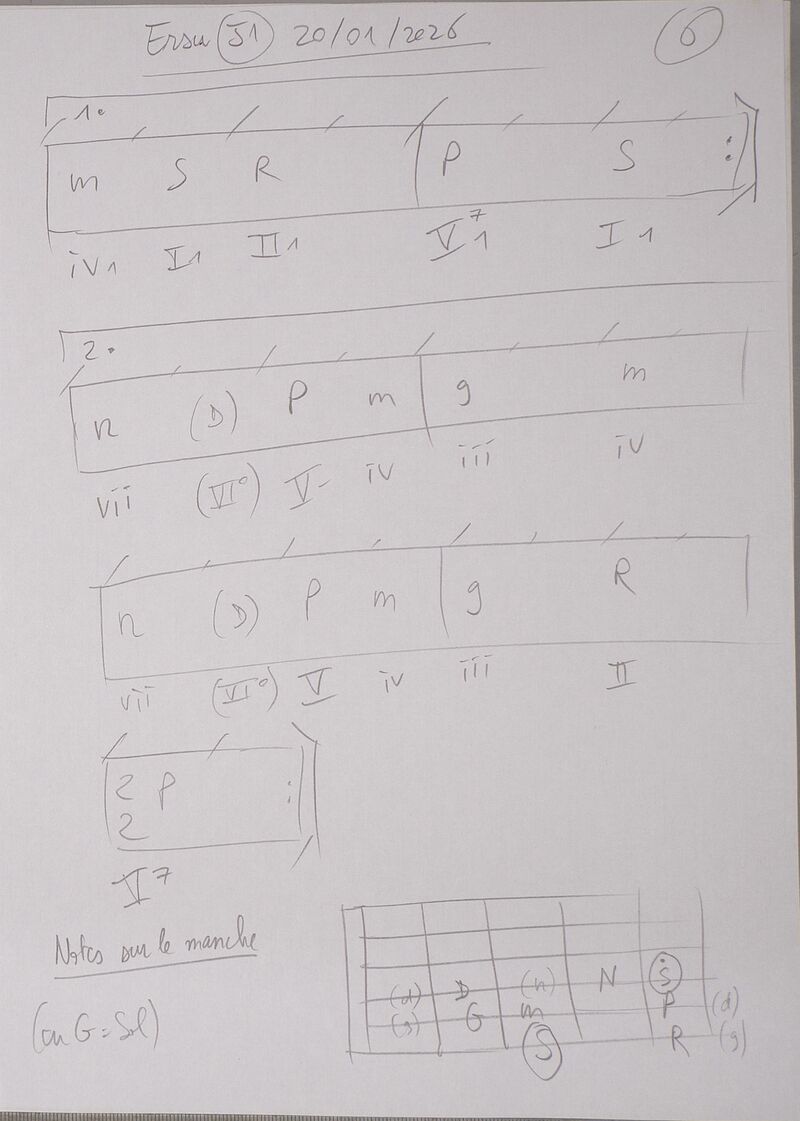 Ersu S1 20/01/2026
6
1.
m S R P S :
iv1 I1 II1 V7 1 I 1
2.
n (D) P m g m
vii (VI°) V- iv iii iv
n (D) P m g R
vii (VI°) V iv iii II
2 P :
2
V7
Notes sur le manche
(en G = Sol)
(d) D (n) N Ṡ
(g) G m P (d)
S R (g)